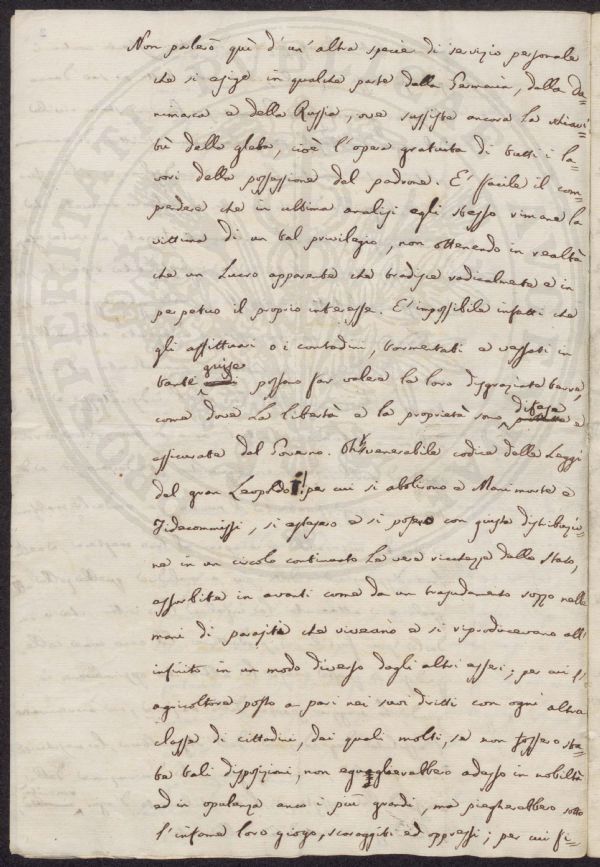 Non parlerò quì d'un'altra specie di servizio personale
che si esige in qualche parte della Germania, della Da-
nimarca e della Russia, ove sussiste ancora la schiavi-
tù della gleba, cioè l'opera gratuita di tutti i la-
vori della possessione del padrone. E' facile il com-
prendere che in ultima analisi egli stesso rimane la
vittima di un tal privilegio, non ottenendo in realtà
che un Lucro apparente che tradisce radicalmente e in
perpetuo il proprio interesse. E' impossibile infatti che
gli affittuari o i contadini, tormentati e vessati in
tante guise possano far valere la loro disgraziata terra,
come dove la libertà e la proprietà sono difese e
assicurate dal Governo. Oh venerabile codice delle Leggi
del gran Leopoldo! per cui si abolirono e Manimorte e
Fidecommissi, si estesero e si posero con giusta distribuzio-
ne in un circolo continuato la vera ricchezza dello Stato,
assorbita in avanti come da un trasudamento sozzo nelle
mani di parasiti che vivevano e si riproducevano all'
infinito in un modo diverso dagli altri esseri; per cui l'
agricoltore posto a pari nei suoi diritti con ogni altra
classe di cittadini, dai quali molti, se non fossero sta-
te tali disposizioni, non eguaglierebbero adesso in nobiltà
ed in opulenza anco i più grandi, ma piegherebbero sotto
l'infame loro giogo, scoraggiti ed oppressi; per cui fi-
PROSPERITATI PUBLICAE